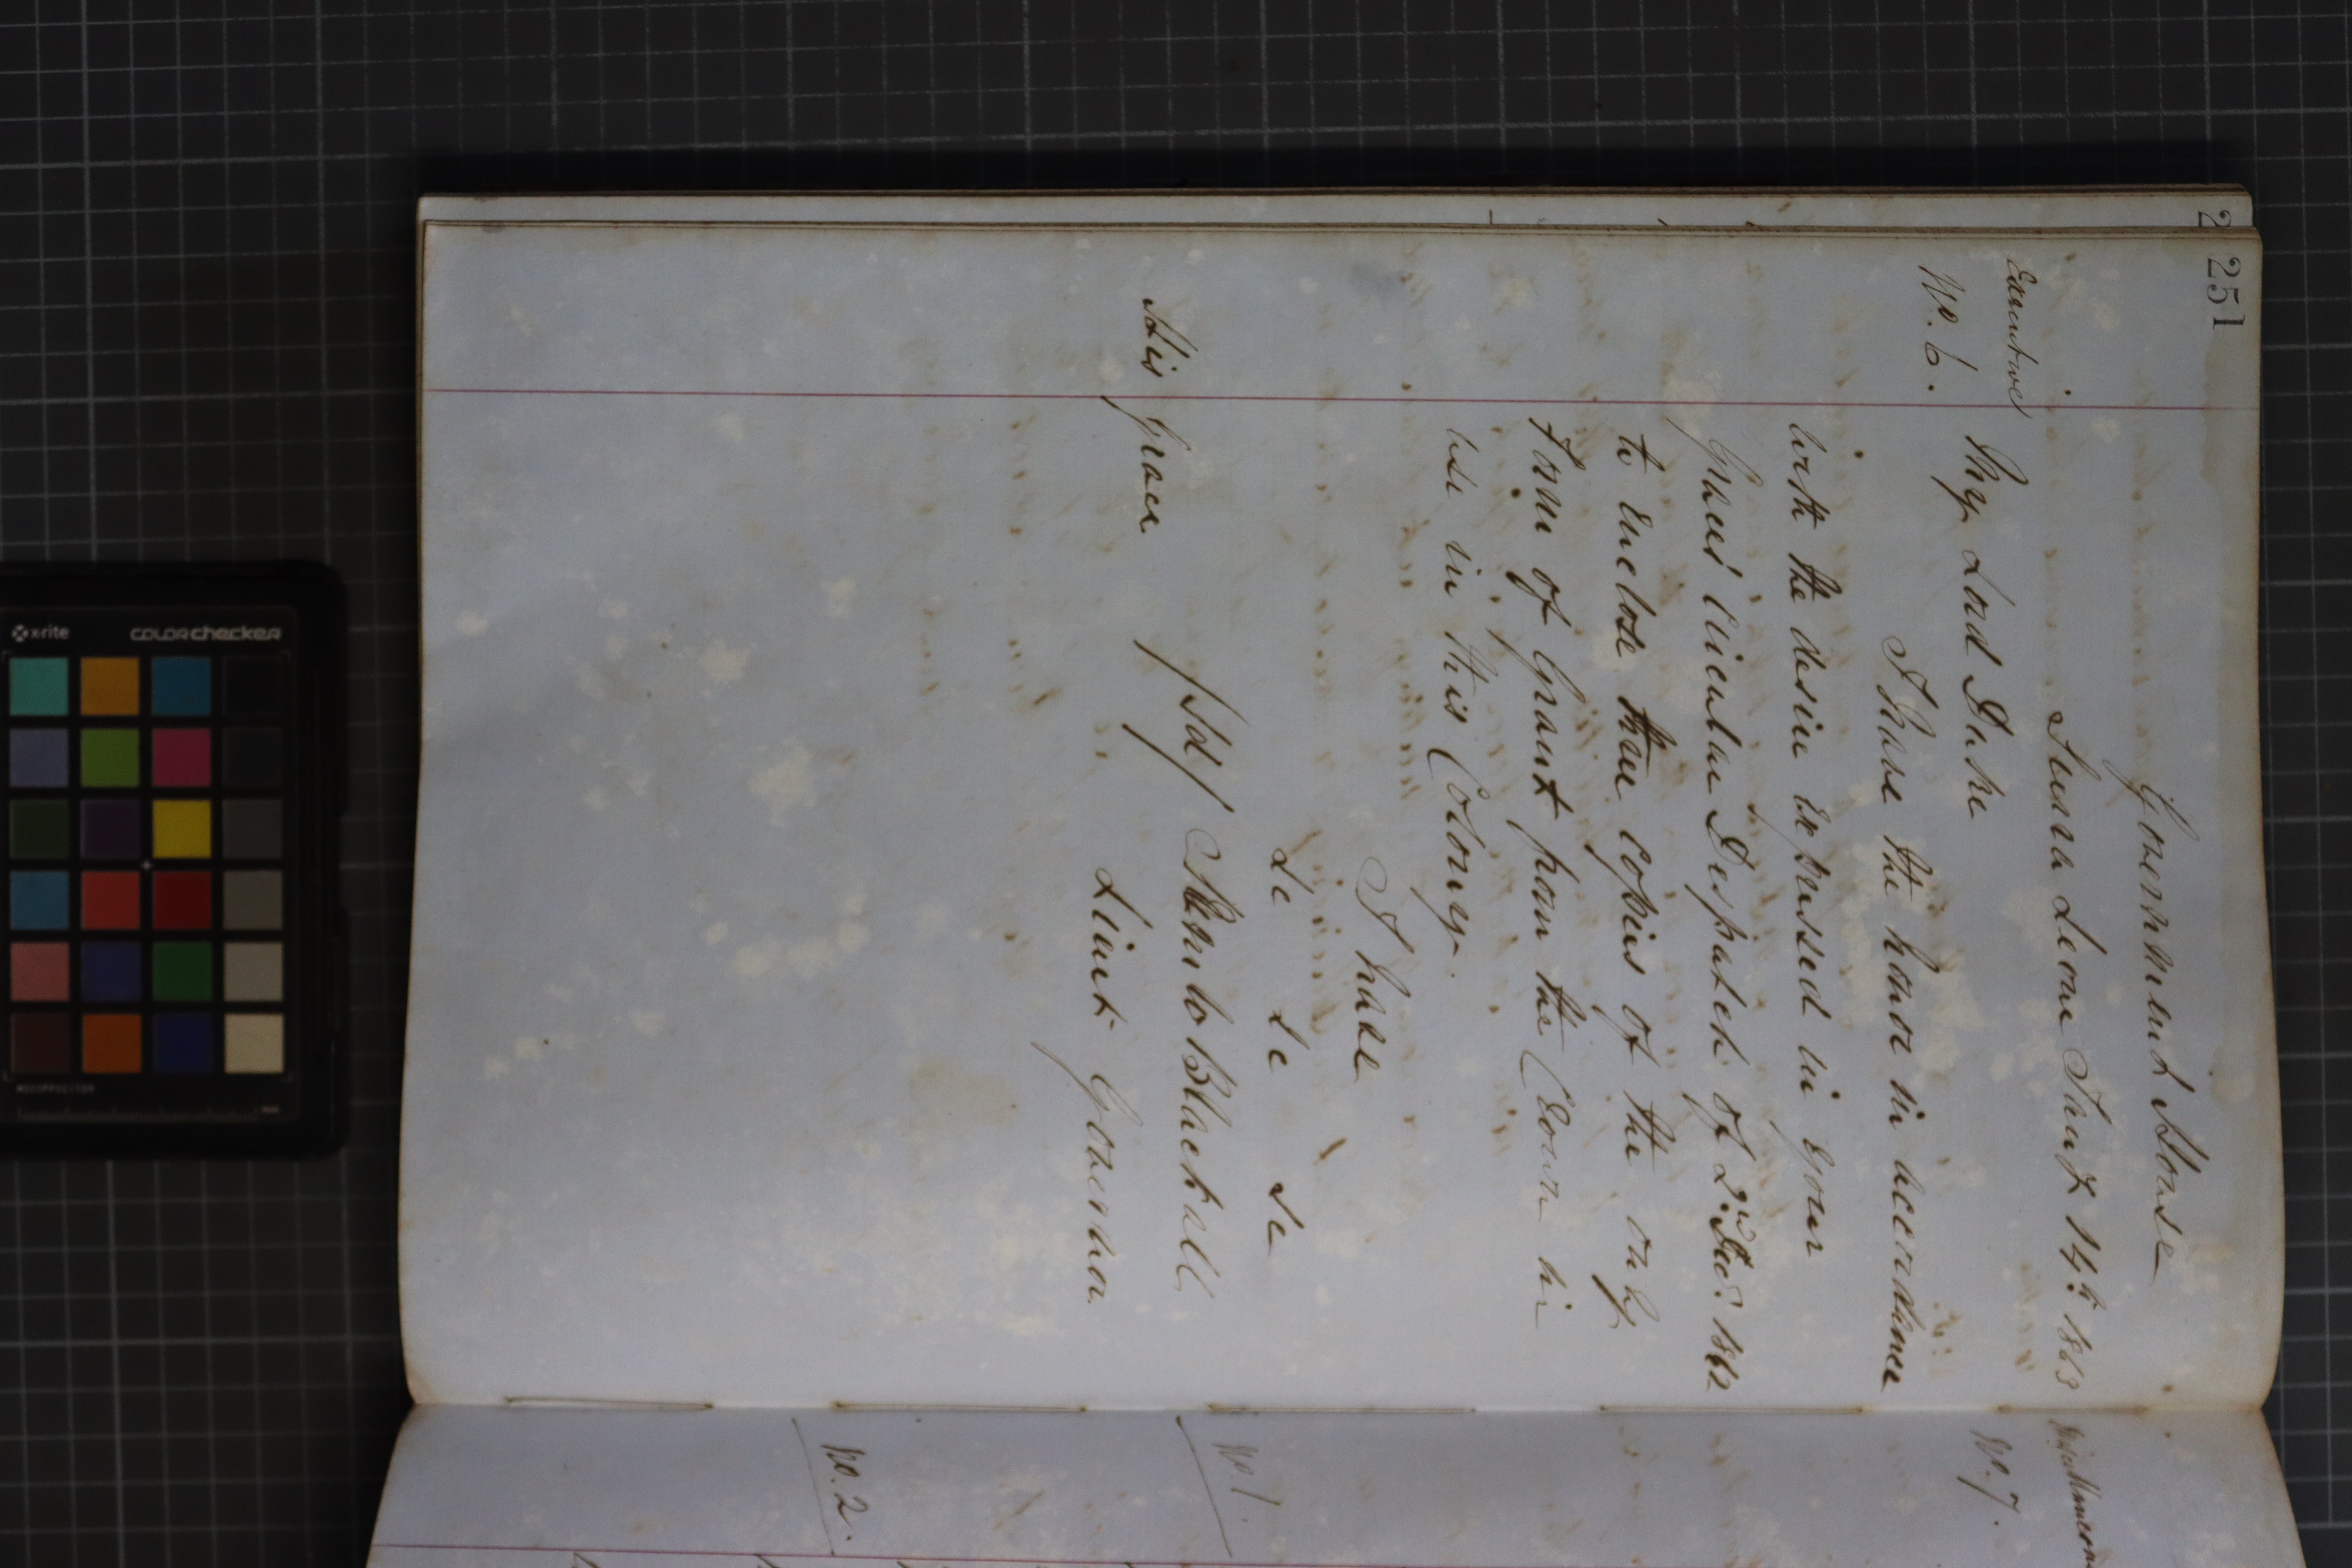 251
Government House
Sierra Leone Jany 14th 1863
Examined
No. 6.
My Lord Duke
I have the honor in accordance
with the desire expressed in your
Grace's Circular Despatch of 2nd Decr 1862
to enclose three copies of the only
Form of Grant from the Crown in
use in this Colony.
I have
&c &c &c
/Sd/ Blackall
Lieut Governor
His Grace
No. 7.
No. 1.
No. 2.
x-rite
colorchecker